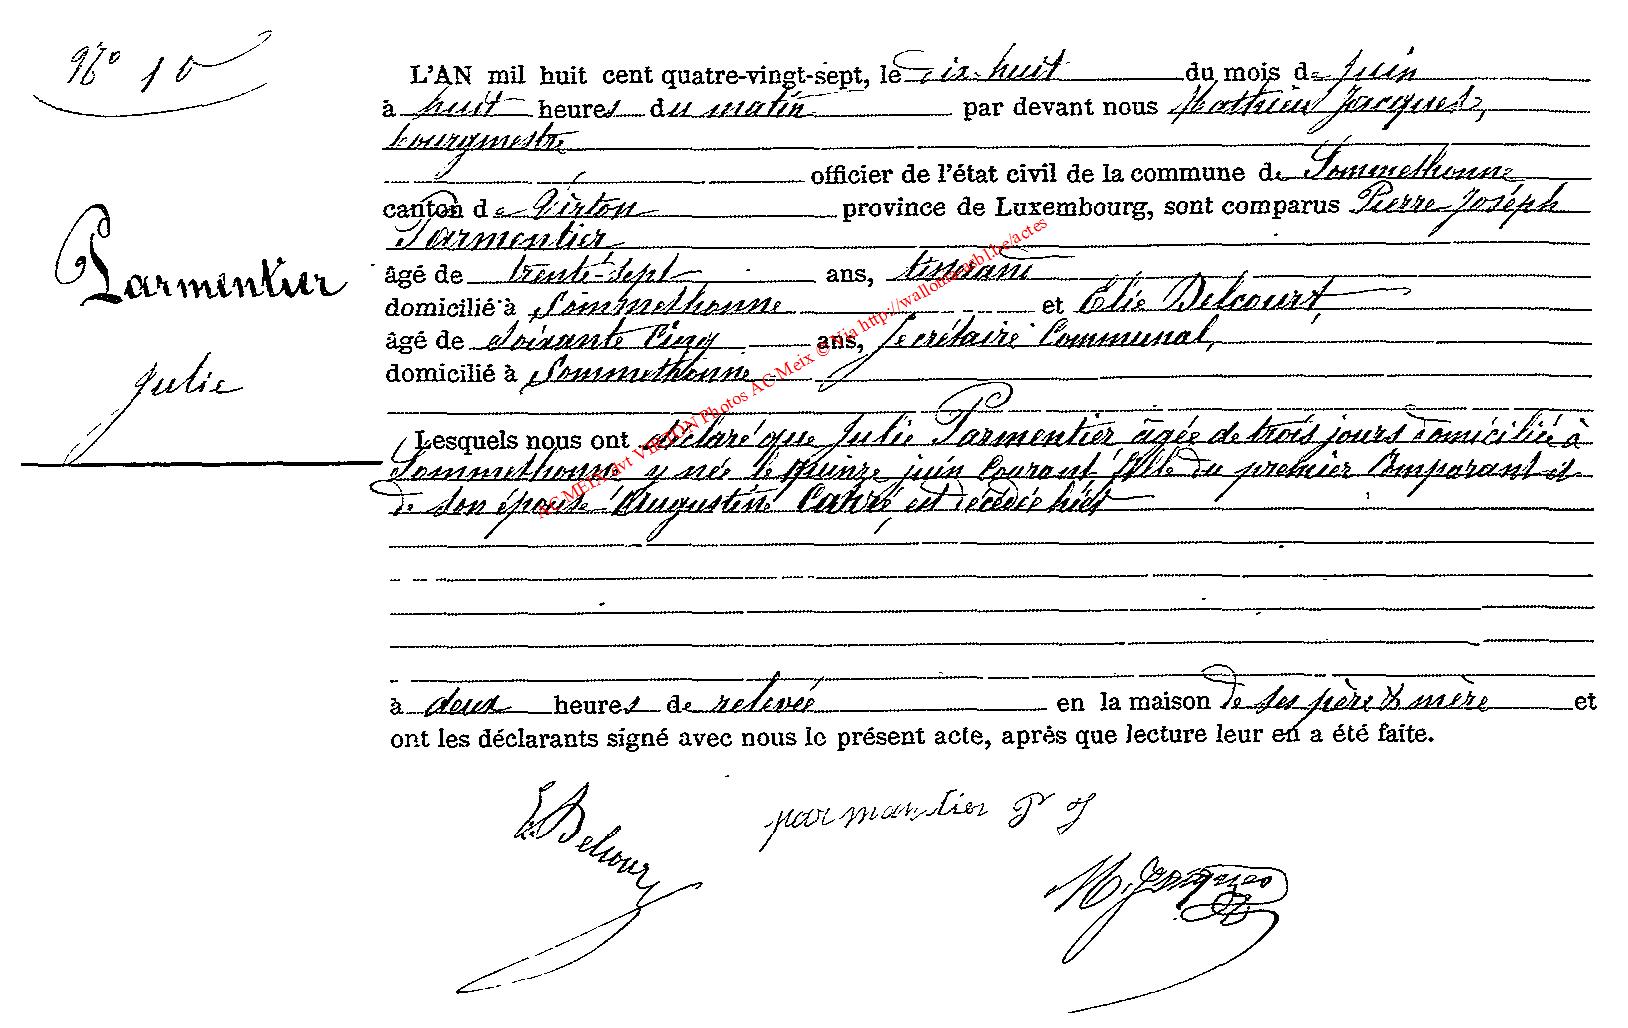 N° 10
Parmentier
Julie
L'AN mil huit cent quatre-vingt-sept, le dix-huit du mois de Juin
à huit heures du matin par devant nous Mathieu Jacques,
bourgmestre
officier de l'état civil de la commune de Sommethonne
canton de Virton province de Luxembourg, sont comparus Pierre Joséph
Parmentier
âgé de trente-sept ans,
domicilié à Sommethonne et Elie Delcourt,
âgé de Soixante Cinq ans, Secrétaire Communal,
domicilié à Sommethonne
Lesquels nous ont déclaré que Julie Parmentier âgée de trois jours domiciliée à
Sommethonne y née le quinze juin Courant, fille du premier Comparant et
de son épouse Augustine Carré, est décédée hier
à deux heures de relevée en la maison de ses père & mère et
ont les déclarants signé avec nous le présent acte, après que lecture leur en a été faite.
E. Delcour
parmantier P J
M. Jacques
AC MEIX dvt VIRTON Photos AC Meix © Via http://wallonia.mbl.be/actes